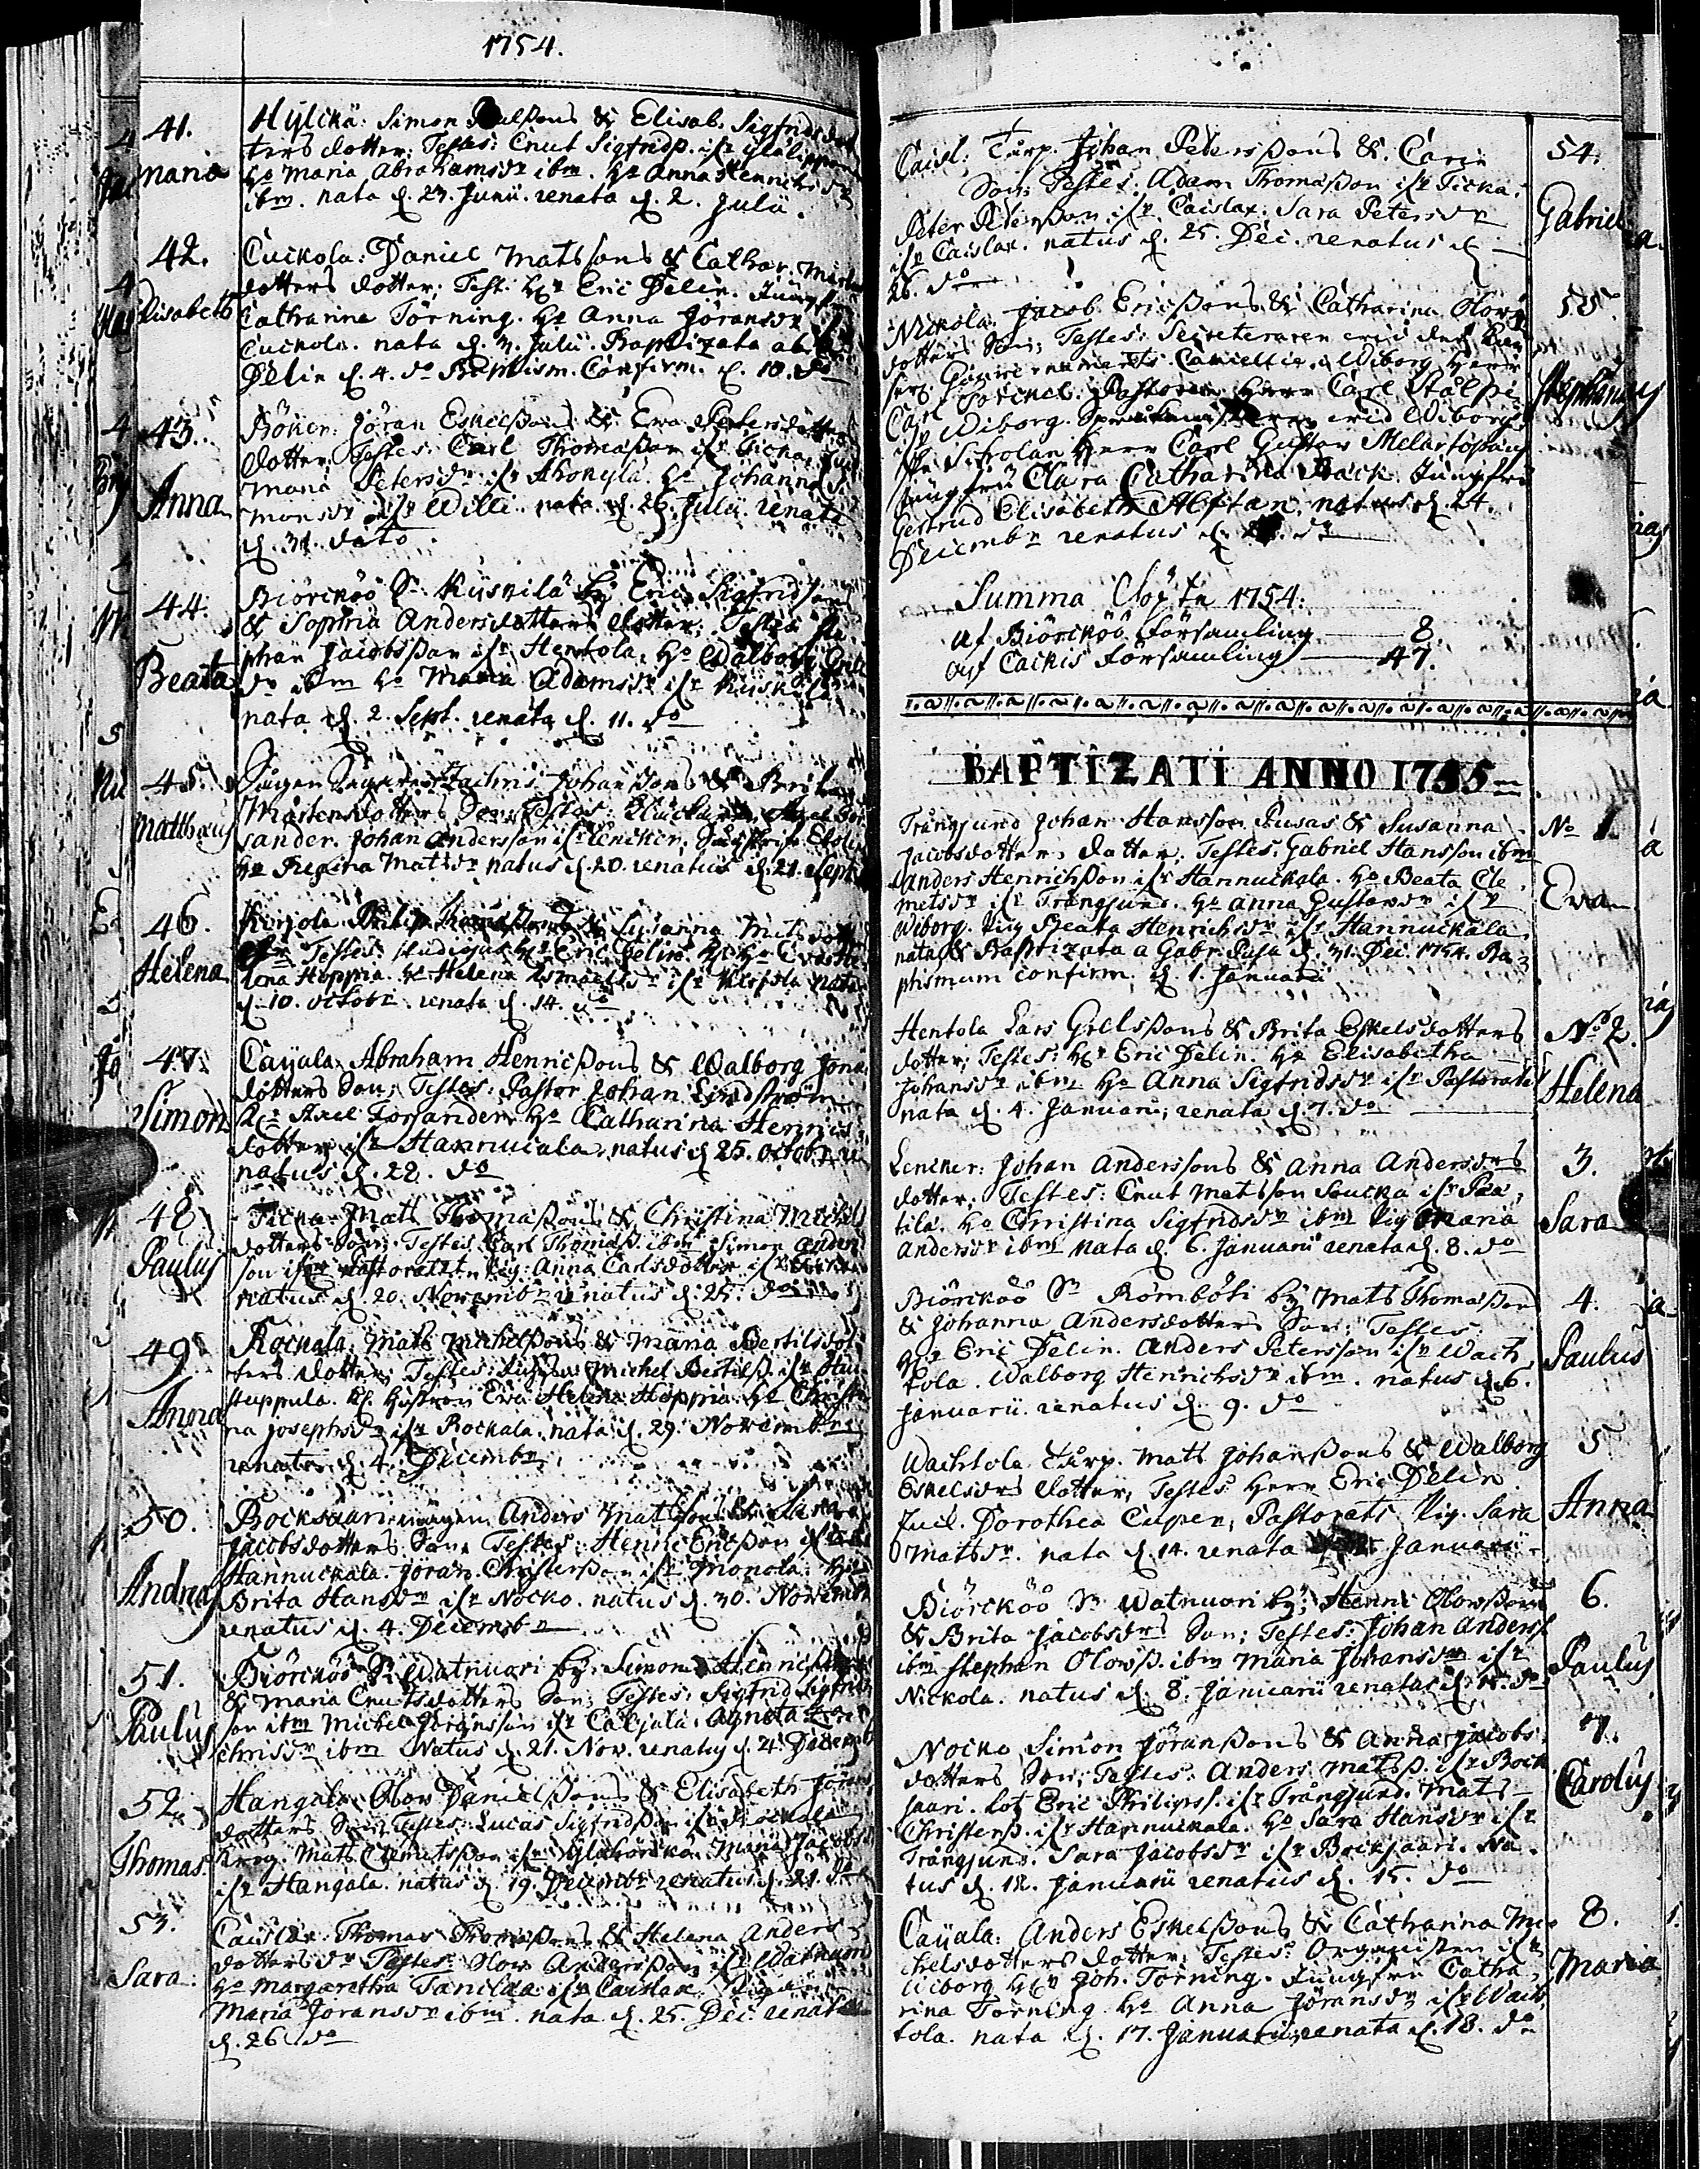 1754.
41.
Maria
Hylckä: Simon Paulßons & Elisab. Sigfrids dot
ters dotter; Testes: Cnut Sigfridß. ifr
Ho Maria Abrahamsdr ibm. Ho Anna Henrichsdr
ibm. nata d. 23. Junii. renata d. 2. Julii.
42.
Elisabeth
Cuckola: Daniel Matssons & Cathar.
dotters dotter; Test. Hr Eric Delin. Jungfru
Catharina Törning. Ho Anna Jöransdr ifr
Cuckola. nata d. 3. Julii. Baptizata ab
Delin d. 4. do Baptism. Confirm. d. 10. do
43.
Anna
Böker: Jöran Eskelßons & Eva Petersdotters
dotter, Testes: Carl Thomaßon ifr Ticka,
Maria Petersdr ifr Ho Johanna
monsdr ifr Willi. nata d. 26. Julii. renata
d. 31. dato
44.
Beata
Biörcköö Sn Kuiskila by Eric Sigfridsons
& Sophia Andersdotters dotter; Testes Ste
phan Jacobsßon ifr Hentola, Ho Walborg
dr ibm Ho Maria Adamsdr ifr
nata d. 2. Sept. renata d. 11. do
45.
Matthæus
Johanßons & Brita
Mårtensdotters Son, Testes: Axel For
sander. Johan Andersson ifr Lencker,
Ho Regina Matsdr natus d. 20. renatus d. 21. Sept.
46.
Helena
Philip & Susanna Mats dotters
Testes: studiosus Hr Eric Delin. Eva He
lena Hoppia. Ho Helena Ismaelsdr ifr nata
d. 10. Octobr. renata d. 14. do
47.
Simon
Caÿala, Abraham Henricßons & Walborg Jons
dotters Son; Testes: Pastor Johan Lindström
Axel Forsander. Ho Catharina Henrics
dotter ifr Hannucala. natus d. 25. Octobr. re
natus d. 28. do
48.
Paulus
Ticka: Mats Thomaßons & Christina Michels
dotters Son; Testes Carl Thomaß. ibm Simon Anders
son ifr Pastoratet. Pig: Anna Carlsdotter ifr
natus d. 20. Novembr renatus d. 25. do
49.
Anna
Rockala: Mats Michelßons & Maria Bertilsdot
ters dotter; Testes: Michel Bertilß ifr
Huppula. Eva Helena Hoppia. Ho Christi
na Josephsdr ifr Rockala. nata d. 29. Novembr
renata d. 4. Decembr.
50.
Andreas
Bocksaari Anders Matßons & Sara
Jacobsdotters Son. Testes: Henric Ericßon ifr
Hannuckala. Jöran Christerßon ifr Monola. Ho
Brita Hansdr ifr Nocko. natus d. 30. Novembr
renatus d. 4. Decembr
51.
Paulus
Biörcköö Sn Watnuori by: Simon Henricßons
& Maria Cnutsdotters Son; Testes: Sigfrid Sigfrids
son ibm Michel Jöransson ifr Cai̋jala, Agneta
chrisdr ibm Natus d. 21. Nov. renatus d. 4. Decemb
52.
Thomas
Hangala, Olov Danielßons & Elisabeth Jöran
dotters Son; Testes: Lucas Sigfridßon ifr Rockala
Mats Clematßon ifr Maria Jacobs
ifr Hangala. natus d. 19. Decembr renatus d. 21. do
53.
Sara.
Caislax Thomas Thomaßons & Helena Anders
dotters dr Testes: Olov Anderßon ifr Watnuori
Ho Margaretha Tanilda ifr Caislax.
Maria Jöransdr ibm. nata d. 25. Dec. renata
d. 26. do
Caisl: Torp. Johan Petersßons & Carin
Son; Testes: Adam Thomaßon ifr Ticka.
Peter Peterßon ifr Caislax: Sara Petersdr
ifr Caislax. natus d. 25. Dec. renatus d.
26. do
54.
Gabriel
Nickola: Jacob Ericßons & Catharina Olovs
dotters Son, Testes: Secreteraren vid det
Gouvernements Cancellie i Wiborg Herr
Carl Pastoren Herr Carl Stålpe
ifr Wiborg. vid Wiborgs
Scholan Herr Carl Gustav Melartopæus
Jungfru Clara Catharina Back. Jungfru
Gertrud Elisabeth Alftan, natus d. 24.
Decembr renatus d. do
55
Stephanus
Summa Döpte 1754:
af Biörcköö Församling 8.
af Cackis Församling 47.
BAPTIZATI ANNO 1755
Trångsund Johan Hansson Pusas & Susanna
Jacobsdotters dotter. Testes. Gabriel Hansson ibm
Anders Henrichßon ifr Hannuckala. Ho Beata Cle
metsdr ifr Trångsund. Ho Anna Gustavsdr ifr
Wiborg. Pig Beata Henrichsdr ifr Hannuckala.
nata & Baptizata a Gabr. Pusa d. 31. Dec. 1754. Ba
ptismum confirm. d. 1. Januarii
No 1.
Eva
Hentola Lars Grelsßons & Brita Eskelsdotters
dotter; Testes: Hr Eric Delin. Ho Elisabetha
Johansdr ibm Ho Anna Sigfridsdr ifr Pastoratet
nata d. 4. Januarii, renata d. 7. do
No 2.
Helena
Lencker: Johan Anderssons & Anna Andersdrs
dotter. Testes: Cnut Matsson Soucka ifr Paa
tila. Ho Christina Sigfridsdr ibm Pig Maria
Andersdr ibm Nata d. 6. Januarii renata d. 8. do
3.
Sara
Biörcköö Sn Römböti by Mats Thomaßons
& Johanna Andersdotters Son; Testes:
Hr Eric Delin. Anders Petersson ifr Wach
tola. Walborg Henrichsdr ibm. natus d. 6.
Januarii. renatus d. 9. do
4.
Paulus
Wachtola Torp. Mats Johanßons & Walborg
Eskelsdrs dotter, Testes Herr Eric Delin
Jud. Dorothea Cuper, Pastorats Pig. Sara
Matsdr. nata d. 14. renata Januarii
5
Anna
Biörcköö Sn Watnuori by; Henric Olovßons
& Brita Jacobsdrs Son; Testes: Johan Anderss.
ibm Stephan Olovß. ibm Maria Johansdr ifr
Nickola. natus d. 8. Januarii renatus d. 15. do
6.
Paulus
Nocko, Simon Jöranßons & Anna Jacobs
dotters Son, Testes: Anders Matsß. ifr Bock
saari. Lotz Eric Philipss. ifr Trångsund. Mats
Christerß. ifr Hannuckala. Ho Sara Hansdr ifr
Trångsund. Sara Jacobsdr ifr Bocksaari. Na
tus d. 12. Januarii renatus d. 15. do
7.
Carolus
Caÿala: Anders Eskelßons & Catharina Mi
chelsdotters dotter: Testes: Organisten ifr
Wiborg Hr Joh. Törning. Jungfru Catha
rina Törning. Ho Anna Jöransdr ifr Wach
tola. nata d. 17. Januarii renata d. 18. do
8.
Maria